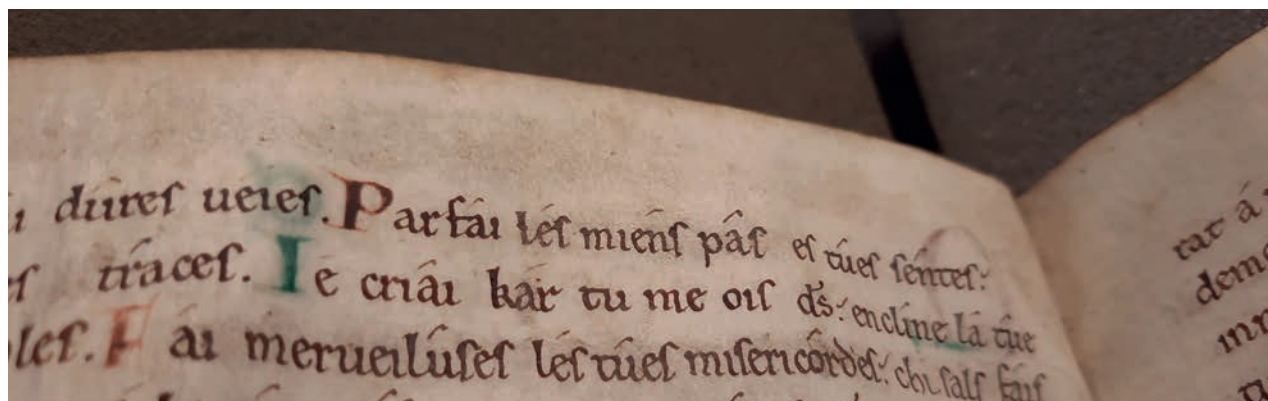 dúres ueies. Parfái lés miens pás es túes séntes:
tráces. Ie criái kár tu me ois ds: enclíne la túe
Fái merueilúses lés túes misericórdes: chi sals fáis
tat á